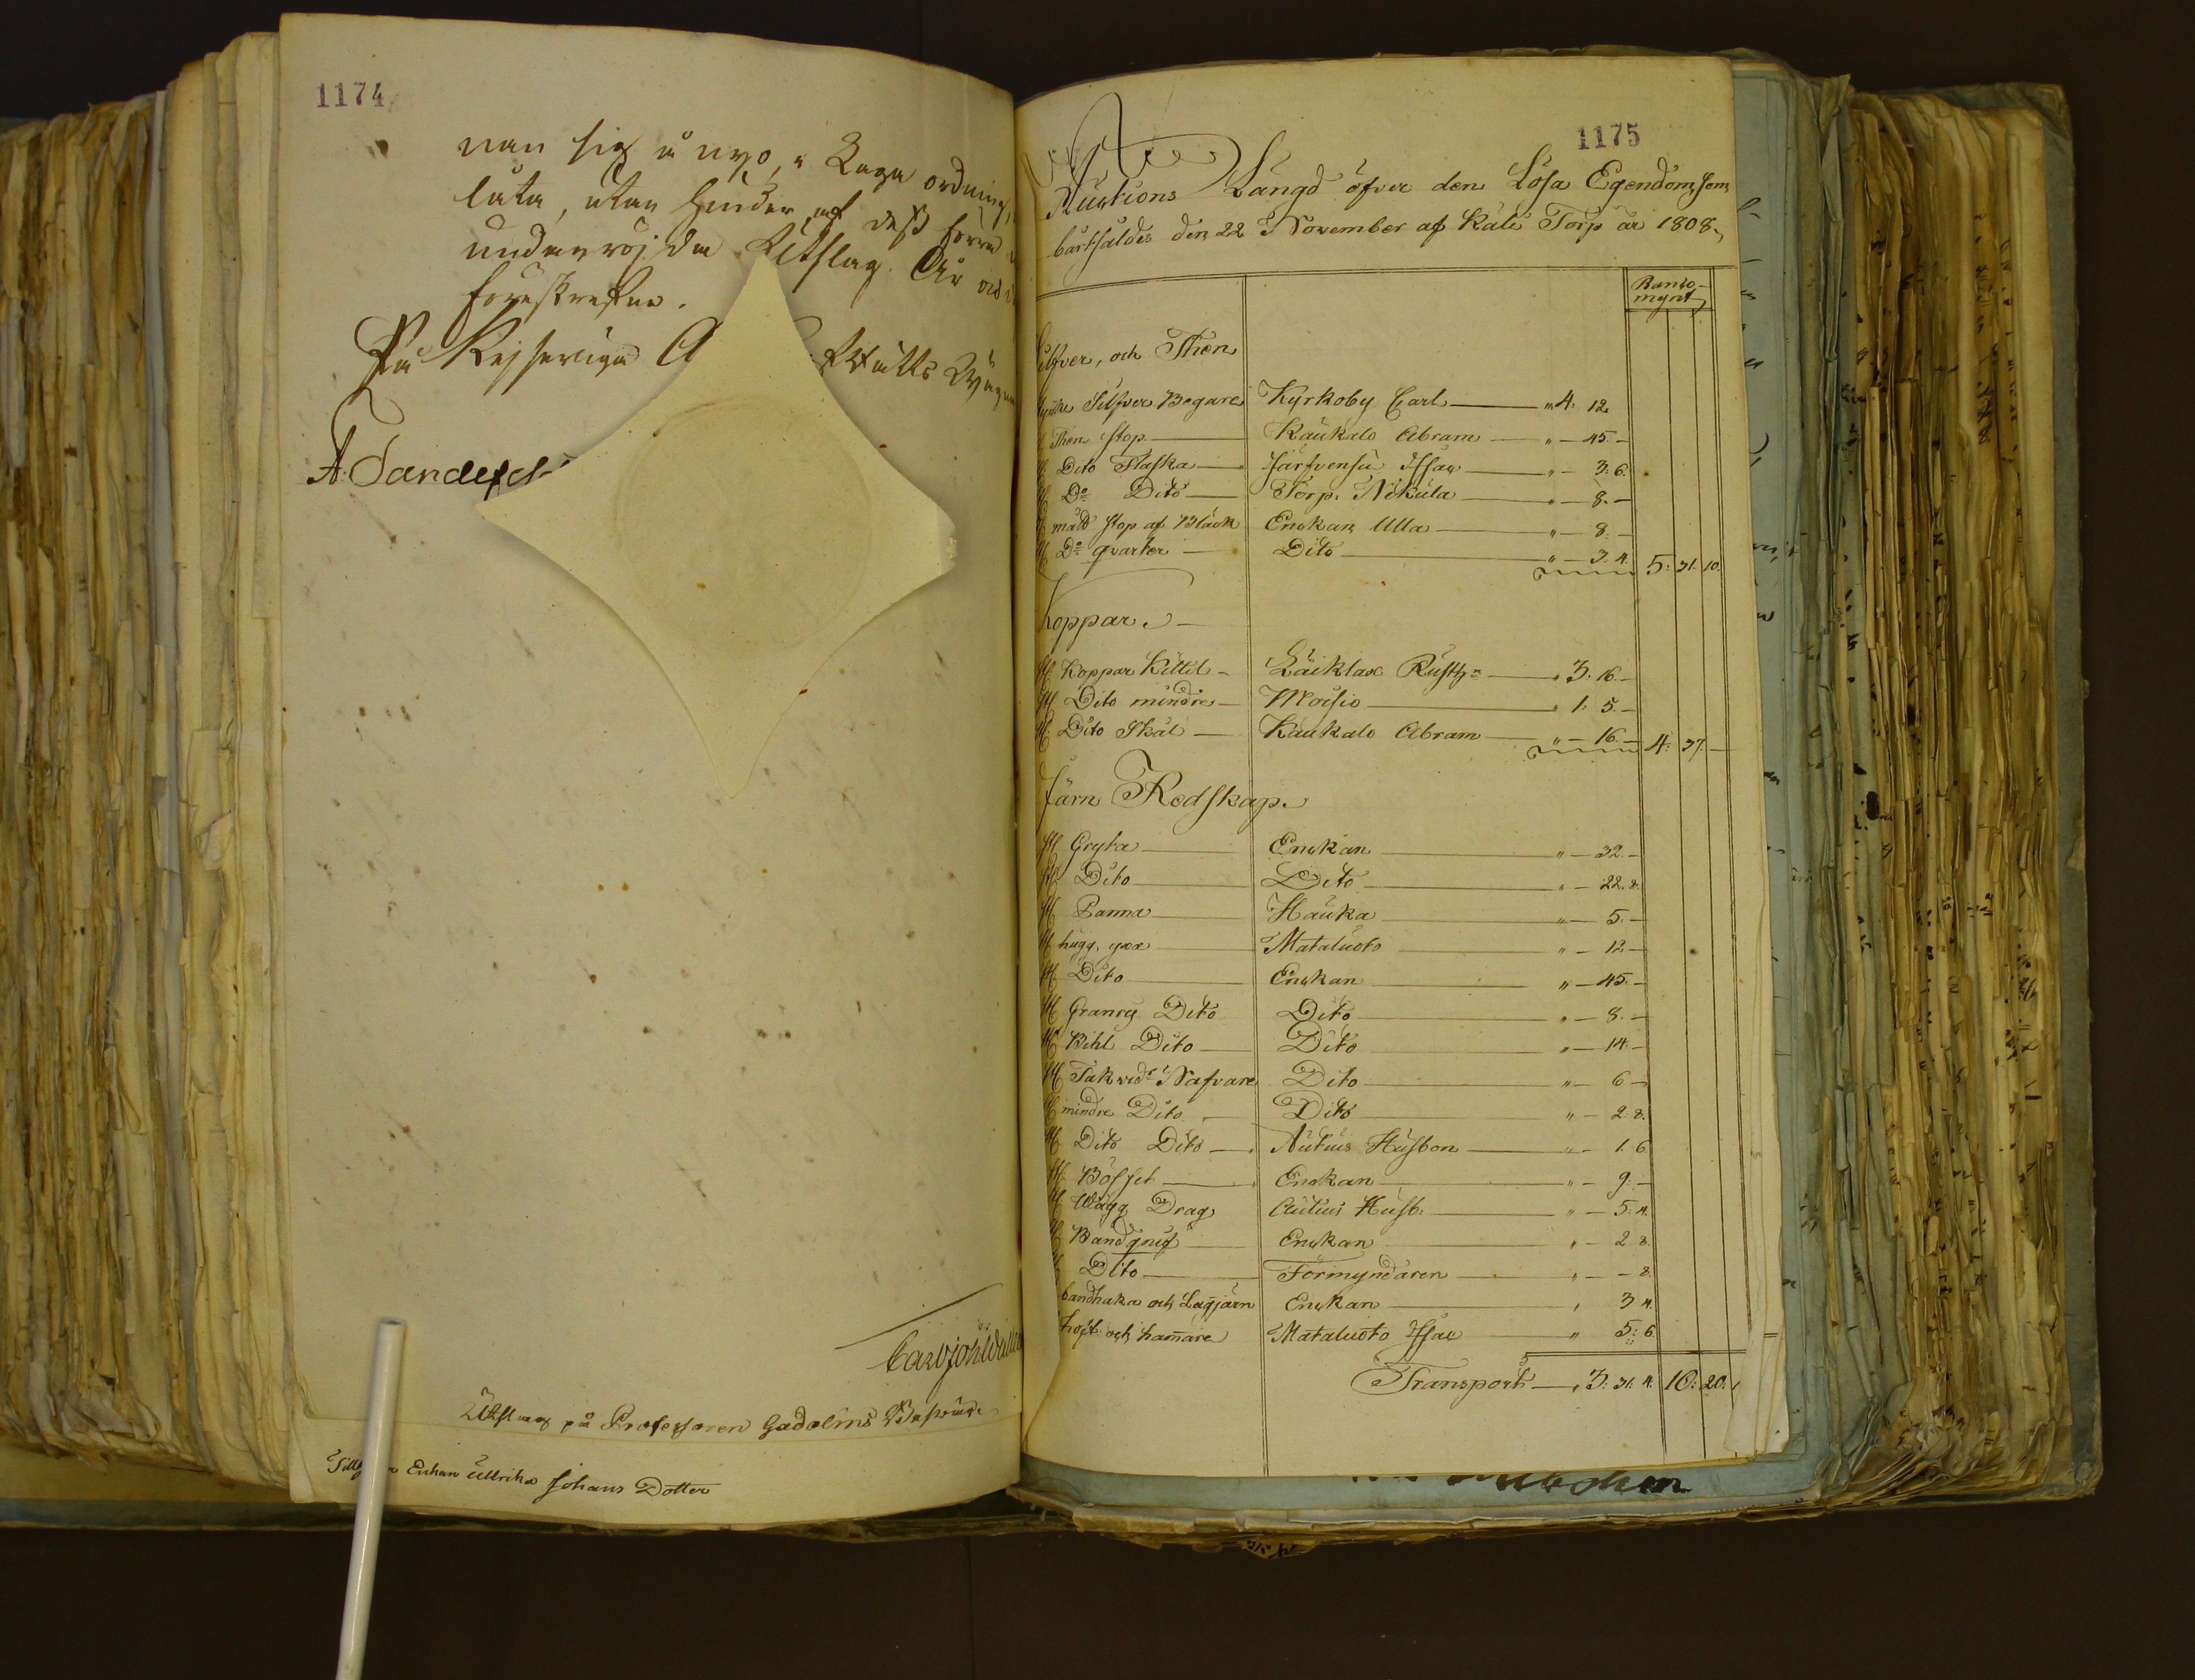 1174
nan sig å nyo, i Laga ordning,
låta, utan hinder af dess förra
underröjda Utslag. År och
förestrefne.
På Kejserliga
Rätts Wägnar
A. Tandefelt
Carl Joh. Walle
Utslag på Professoren Gadolins Besvär
Enkan Ullrika Johans Dotter
1175
Auctions Längd öfver den Lösa Egendom, som
bortsåldes den 22 November af Kåle Torp år 1808.
Banco-
mynt
Silfver, och Then
Stycke Silfver Begare Kyrkoby Carl " 4: 12
Then stop Kaukalo Abram " — 45. —
Dito Flaska Järfvensu Issac " — 3: 6.
Do Dito Torp. Nikula " — 8. —
måld stop af Bläck Enckan Ulla " — 8. —
Do qvarter Dito " — 3. 4. 5: 31. 10.
Koppar.
Koppar Kittel Laiklax Rusth: " 3. 16. —
Dito mindre Moisio " 1: 5. —
Dito Skål Kaukalo Abram " — 16. — 4: 37. —
Järn Redskap.
Gryta Enckan " — 32. —
Dito Dito " — 22. 8.
Panna Hauka " — 5. —
hugg yxe Mataluoto " — 12 —
Dito Enckan " — 45. —
Dito Dito " — 8. —
Bihl Dito Dito " — 14. —
Takved: Nafvare Dito " — 6 —
mindre Dito Dito " — 2 8.
Dito Dito Autuis Husbon " — 1. 6
Bösset Enckan " — 9. —
Wagg Drag Autuis Husb. " — 5. 4.
Bandgnif Enckan " — 2 8.
Dito Förmyndaren " — — 8.
bandhaka och Lagjärn Enckan " 3 4.
hoft. och hamare Mataluoto Issac " 5: 6.
Transport " 3: 31. 4. 10: 20.